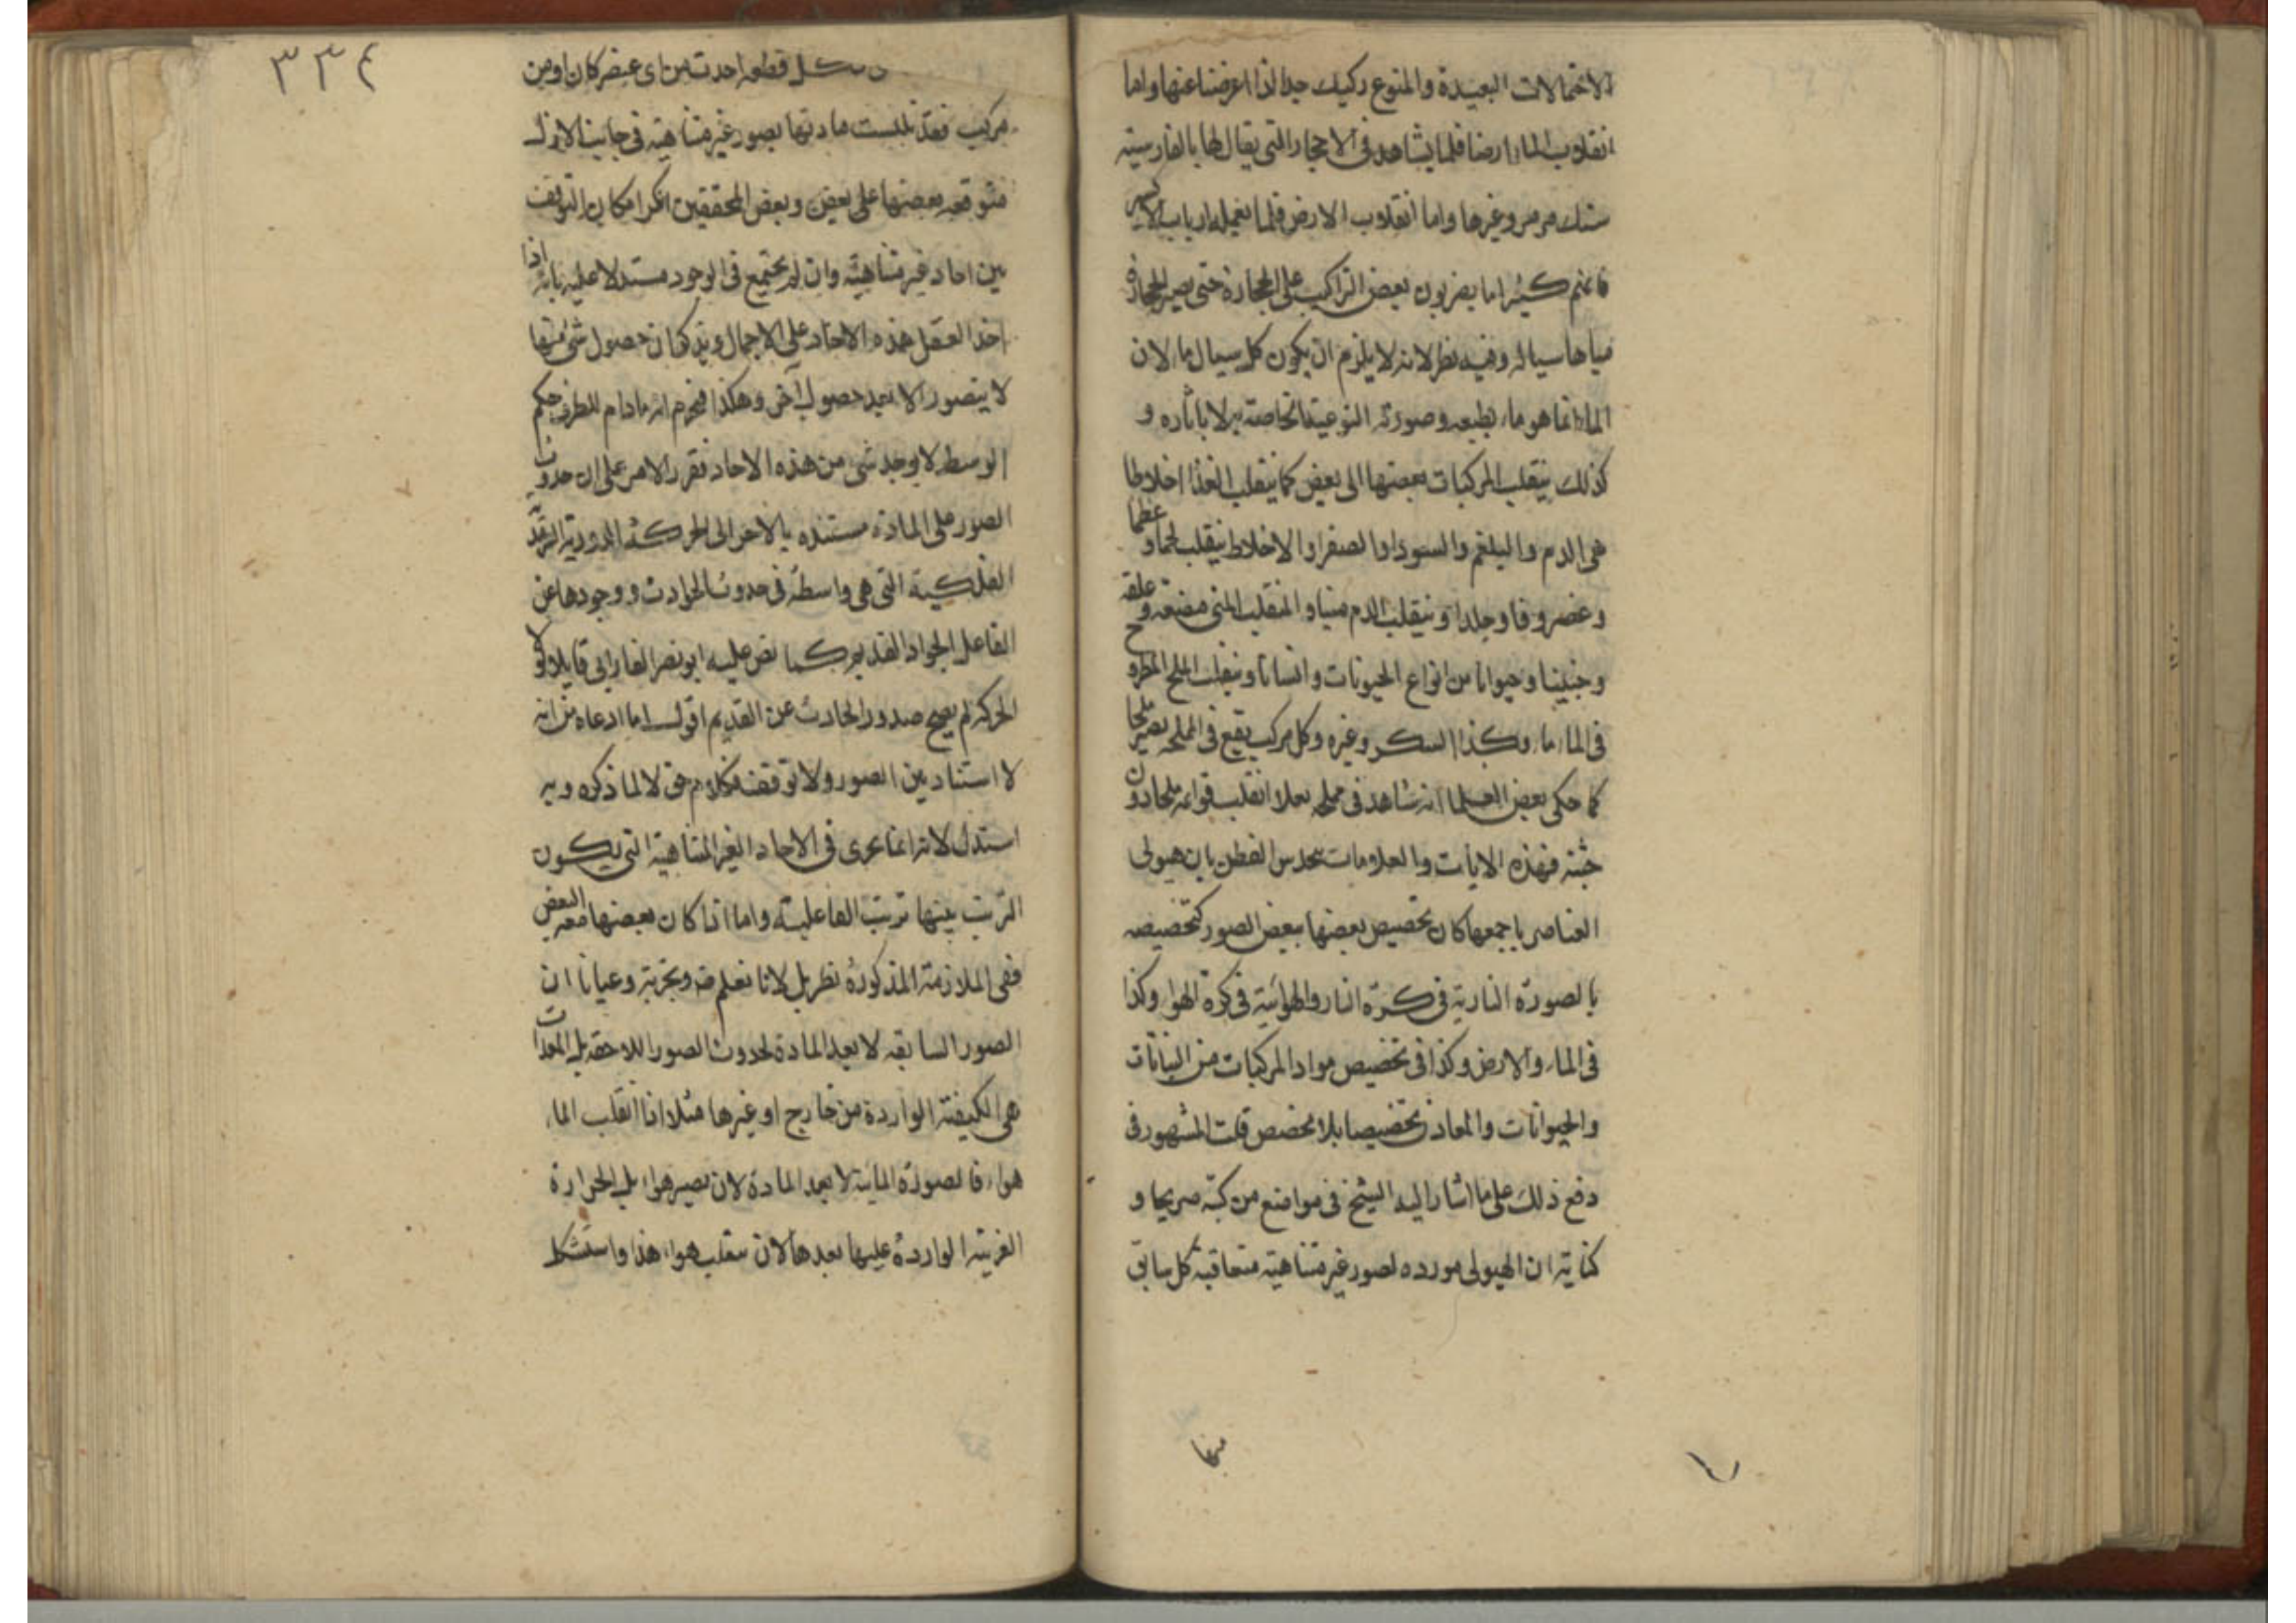 الاحتمالات البعيدة والمنوع ركيك جدا لذا اعرضنا عنها واما
انقلاب الماء ارضا فلما يشاهد فى الاحجار التى يقال لها بالفارسية
سنك مرمر وغيرها واما انقلاب الارض فلما يعمله ارباب الاكسير
فانهم كثيرا ما يضربون بعض التراكيب على الحجارة حتى يصير الحجارة
مياها سيالة وفيه نظر لانه لا يلزم ان يكون كل سيال ماء لان
الماء انما هو ماء بطبعه وصورته النوعية الخاصة به لا باثاره و
كذلك ينقلب المركبات بعضها الى بعض كما ينقلب الغذا اخلاطا
هى الدم والبلغم والسودا والصفرا والاخلاط ينقلب لحما و عظما
وغضروفا وجلدا وينقلب الدم منيا و المنقلب المنى مضغه و علقه
وجنينا وحيوانا من انواع الحيونات وانسانا وينقلب الملح المطروح
فى الماء ماء وكذا السكر وغيره وكل مركب يقع فى المملحة يصير ملحا
كما حكى بعض العلما انه شاهد فى مملحه بغلا انقلب قوائمه ملحا دون
جثته فهذه الايات والعلامات يحدس الفطن بان هيولى
العناصر باجمعها كان تخصيص بعضها ببعض الصور كتخصيصه
بالصورة النارية فى كرة النار والهوائية فى كرة الهواء وكذا
فى الماء والارض وكذا فى تخصيص مواد المركبات من النباتات
والحيوانات والمعادن تخصيصا بلا مخصص قلت المشهور فى
دفع ذلك على ما اشار اليه الشيخ فى مواضع من كتبه صريحا و
كناية ان الهيولى مورده لصور غير متناهية متعاقبة كل سابق
منها
٣٣٤
كل قطعه احدث من اى عنصر كان او من
مركب فقد تلبست مادتها بصور غير متناهية فى جانب الازل
متوقفه بعضها على بعض وبعض المحققين انكر امكان التوقف
بين احاد غير متناهية وان لم يجتمع فى الوجود مستدلا عليه بانه اذا
اخذ العقل هذه الاحاد على الاجمال وتذكر ان حصول شئ منها
لا يتصور الا بعد حصول آخر وهكذا فيجزم انه ما دام للطرف حكم
الوسط لا يوجد شى من هذه الاحاد فقرر الامر على ان حدوث
الصور على المادة مستنده بالاخر الى الحركة الدورية
الفلكية التى هى واسطة فى حدوث الحوادث ووجودها عن
الفاعل الجواد القديم كما نص عليه ابو نصر الفارابى قايلا لولا
الحركة لم يصح صدور الحادث عن القديم اقول اما ادعاه من انه
لا استناد بين الصور ولا توقف فكلام حق لا لما ذكره وبه
استدل لانه انما يجرى فى الاحاد الغير المتناهية التى يكون
الترتب بينها ترتب الفاعلية واما اذا كان بعضها البعض
ففى الملازمة المذكورة نظر بل لانا نعلم وتجربة وعيانا ان
الصور السابقه لا يعد المادة لحدوث الصور اللاحقه بل المعدات
هى الكيفية الواردة من خارج او غيرها مثلا اذا انقلب الماء
هواء فالصورة المائية لا يعد المادة لان يصير هواء بل الحرارة
الغريبة الواردة عليها يعدها لان ينقلب هواء هذا واستشكل